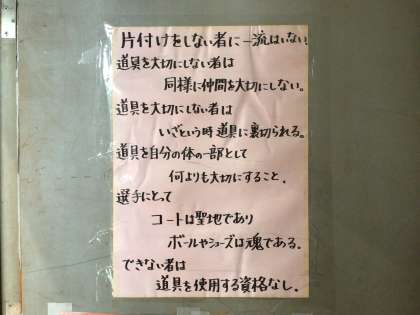 片付けをしない者に一流はいない。
道具を大切にしない者は
同様に仲間を大切にしない。
道具を大切にしない者は
いざという時道具に裏切られる。
道具を自分の体の一部として
何よりも大切にすること。
選手にとって
コートは聖地であり
ボールやシューズは魂である。
できない者は
道具を使用する資格なし。